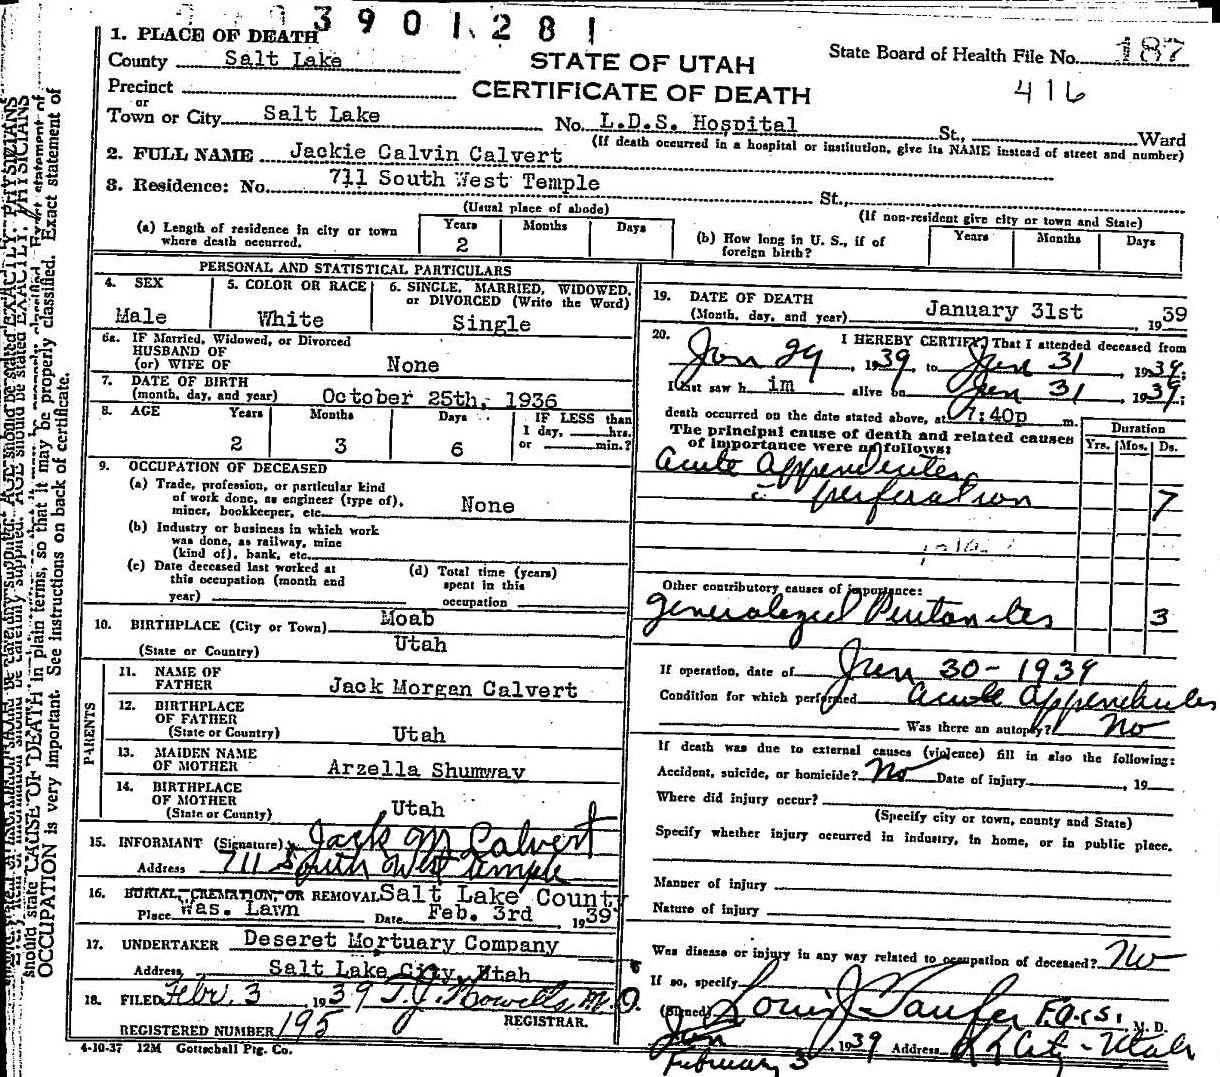 3901281
1. PLACE OF DEATH
State Board of Health File No. 187
County Salt Lake
STATE OF UTAH
416
Precinct
CERTIFICATE OF DEATH
or
Town or City Salt Lake No. L.D.S. Hospital St., Ward
(If death occurred in a hospital or institution, give its NAME instead of street and number)
2. FULL NAME Jackie Calvin Calvert
3. Residence: No. 711 South West Temple St.,
(Usual place of abode) (If non-resident give city or town and State)
(a) Length of residence in city or town where death occurred. Years 2 Months Days
(b) How long in U. S., if of foreign birth? Years Months Days
PERSONAL AND STATISTICAL PARTICULARS
4. SEX Male
5. COLOR OR RACE White
6. SINGLE, MARRIED, WIDOWED, or DIVORCED (Write the Word) Single
6a. If Married, Widowed, or Divorced
HUSBAND OF
(or) WIFE OF None
7. DATE OF BIRTH
(month, day, and year) October 25th, 1936
8. AGE Years Months Days IF LESS than
1 day, hrs.
2 3 6 or min.?
9. OCCUPATION OF DECEASED
(a) Trade, profession, or particular kind
of work done, as engineer (type of),
miner, bookkeeper, etc. None
(b) Industry or business in which work
was done, as railway, mine
(kind of), bank, etc.
(c) Date deceased last worked at
this occupation (month and
year)
(d) Total time (years)
spent in this
occupation
10. BIRTHPLACE (City or Town) Moab
(State or Country) Utah
PARENTS
11. NAME OF
FATHER Jack Morgan Calvert
12. BIRTHPLACE
OF FATHER
(State or Country) Utah
13. MAIDEN NAME
OF MOTHER Arzella Shumway
14. BIRTHPLACE
OF MOTHER
(State or Country) Utah
15. INFORMANT (Signature) Jack M Calvert
Address 711 South West Temple
16. BURIAL, CREMATION, OR REMOVAL Salt Lake County
Place Was. Lawn Date Feb. 3rd 1939
17. UNDERTAKER Deseret Mortuary Company
Address Salt Lake City, Utah
18. FILED Febr. 3, 1939 T.J. Howells, M.D.
REGISTRAR.
REGISTERED NUMBER 195
4-10-37 12M Gottschall Ptg. Co.
19. DATE OF DEATH
(Month, day, and year) January 31st, 1939
20. I HEREBY CERTIFY, That I attended deceased from
Jan 29, 1939, to Jan 31, 1939;
I last saw him alive on Jan 31, 1939;
death occurred on the date stated above, at 7:40p m.
The principal cause of death and related causes
of importance were as follows:
Duration
Yrs. Mos. Ds.
Acute Appendicitis
c̄ perforation 7
Other contributory causes of importance:
Generalized Peritonitis 3
If operation, date of Jan 30-1939
Condition for which performed Acute Appendicitis
Was there an autopsy? No
If death was due to external causes (violence) fill in also the following:
Accident, suicide, or homicide? No Date of injury, 19
Where did injury occur?
(Specify city or town, county and State)
Specify whether injury occurred in industry, in home, or in public place.
Manner of injury
Nature of injury
Was disease or injury in any way related to occupation of deceased? No
If so, specify
(Signed) Louis J Taufer F.A.C.S. M. D.
Jan
February 3, 1939 Address S L City - Utah
should state CAUSE OF DEATH in plain terms, so that it may be properly classified. Exact statement of
OCCUPATION is very important. See instructions on back of certificate.